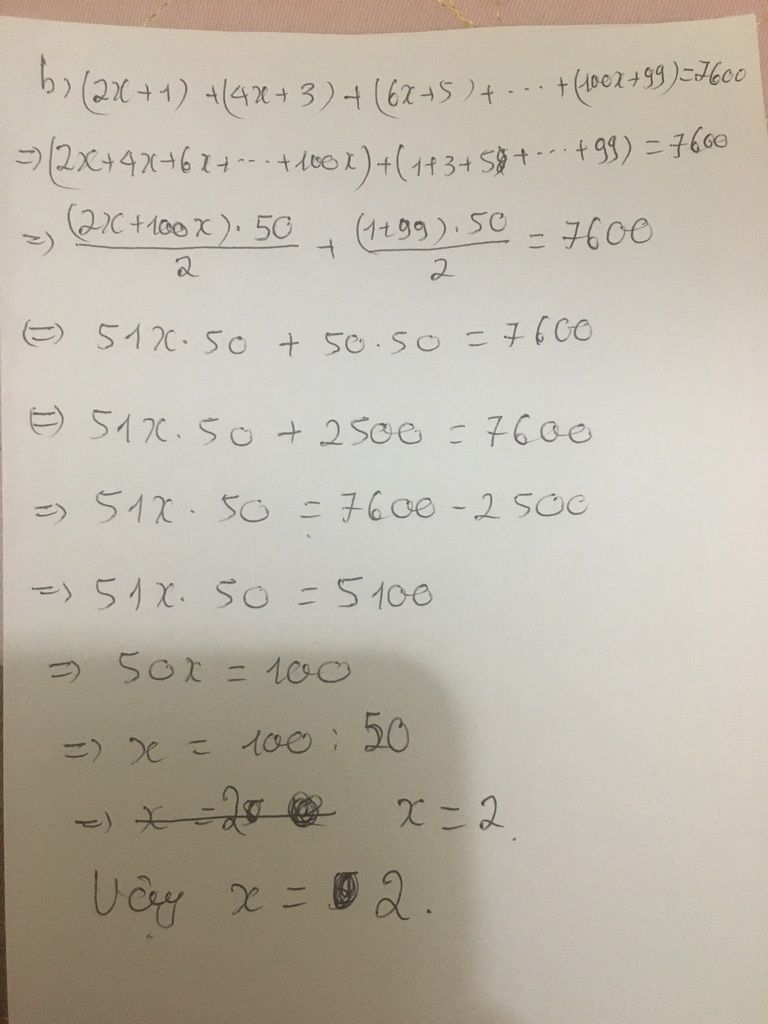 b) (2x+1) + (4x+3) + (6x+5) + ... + (100x+99) = 7600
=> (2x+4x+6x+...+100x) + (1+3+5+...+99) = 7600
=> (2x+100x).50/2 + (1+99).50/2 = 7600
(=) 51x.50 + 50.50 = 7600
(=) 51x.50 + 2500 = 7600
=> 51x.50 = 7600-2500
=> 51x.50 = 5100
=> 50x = 100
=> x = 100 : 50
=> x = 2 x = 2.
Vậy x = 2.